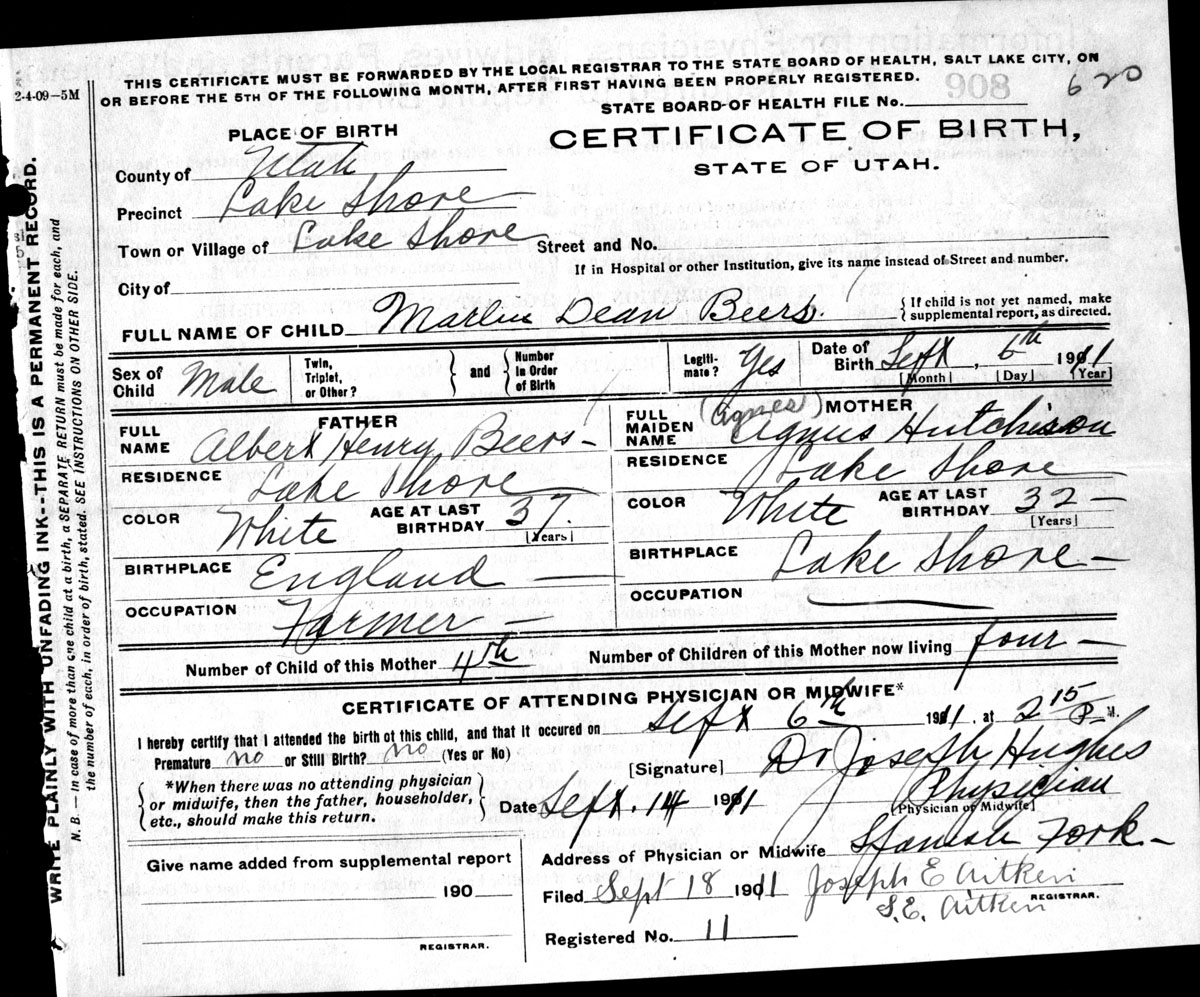 THIS CERTIFICATE MUST BE FORWARDED BY THE LOCAL REGISTRAR TO THE STATE BOARD OF HEALTH, SALT LAKE CITY, ON
OR BEFORE THE 5TH OF THE FOLLOWING MONTH, AFTER FIRST HAVING BEEN PROPERLY REGISTERED.
2-4-09-5M
STATE BOARD OF HEALTH FILE No. 620
CERTIFICATE OF BIRTH,
STATE OF UTAH.
PLACE OF BIRTH
County of Utah
Precinct Lake Shore
Town or Village of Lake Shore Street and No.
If in Hospital or other Institution, give its name instead of Street and number.
City of
FULL NAME OF CHILD Marlin Dean Beers. { If child is not yet named, make
supplemental report, as directed.
Sex of Child Male Twin, Triplet, or Other? } and { Number in Order of Birth Legitimate? Yes Date of Birth Sept, 6th 1911
[Month] [Day] [Year]
FATHER
FULL NAME Albert Henry Beers
RESIDENCE Lake Shore
COLOR White AGE AT LAST BIRTHDAY 37. [Years]
BIRTHPLACE England
OCCUPATION Farmer
MOTHER
FULL MAIDEN NAME (Agnes) Agnus Hutchison
RESIDENCE Lake Shore
COLOR White AGE AT LAST BIRTHDAY 32 [Years]
BIRTHPLACE Lake Shore
OCCUPATION
Number of Child of this Mother 4th Number of Children of this Mother now living four
CERTIFICATE OF ATTENDING PHYSICIAN OR MIDWIFE*
I hereby certify that I attended the birth of this child, and that it occured on Sept 6th 1911, at 2 15 P M.
Premature no or Still Birth? no (Yes or No)
[Signature] Dr Joseph Hughes
Physician
[Physician or Midwife]
*When there was no attending physician
or midwife, then the father, householder,
etc., should make this return.
Date Sept. 14 1911
Give name added from supplemental report
190
REGISTRAR.
Address of Physician or Midwife Spanish Fork
Filed Sept 18 1911 Joseph E Aitken
S.E. Aitken REGISTRAR.
Registered No. 11
WRITE PLAINLY WITH UNFADING INK--THIS IS A PERMANENT RECORD.
N. B.—In case of more than one child at a birth, a SEPARATE RETURN must be made for each, and
the number of each, in order of birth, stated. SEE INSTRUCTIONS ON OTHER SIDE.